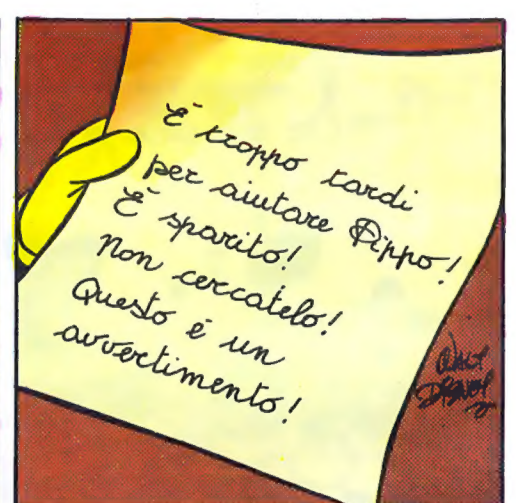 È troppo tardi
per aiutare Pippo!
È sparito!
Non cercatelo!
Questo è un
avvertimento!
Walt
Disney